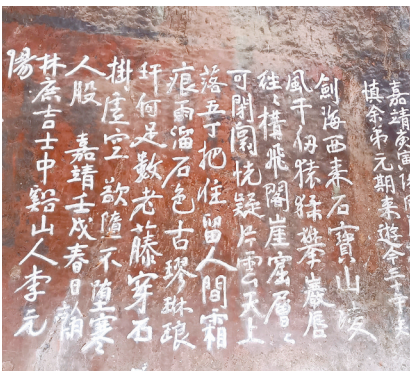 嘉靖庚寅
慎余弟元期来遊今三十年矣
劍海西来石寶山凌
風千仞猿猱攀巖唇
往〻構飛閣崖窟層〻
可閉關恍疑片雲天上
落五丁把住留人間霜
痕雨溜石色古璆琳琅
玕何足數老藤穿石
掛虛空欲隨不墮寒
人股 嘉靖壬戌春日翰
林庶吉士中谿山人李元
陽